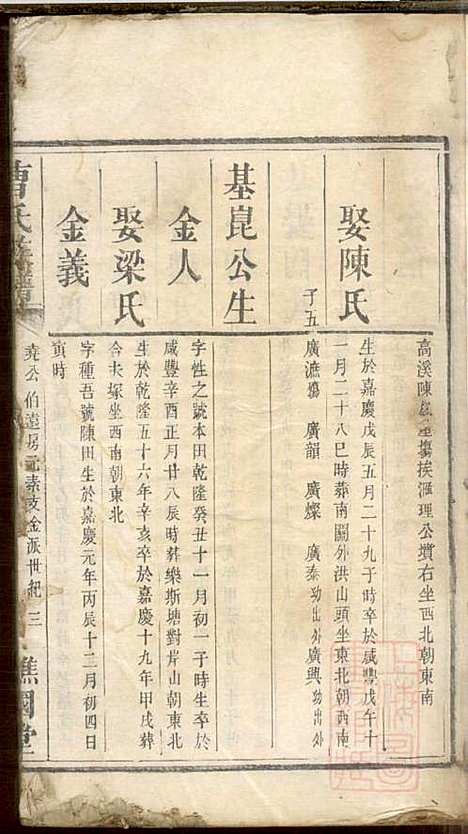 高溪陳
挨滙理公墳右坐西北朝東南
娶陳氏
生於嘉慶戊辰五月二十九子時卒於咸豐戊午十
一月二十八巳時葬南關外洪山頭坐東北朝西南
子五
廣漉殤 廣韻 廣燦 廣泰幼出外 廣興幼出外
基崑公生
金人
字性之號本田乾隆癸丑十一月初一子時生卒於
咸豐辛酉正月廿八辰時葬樂斯塘對芹山朝東北
娶梁氏
生於乾隆五十六年辛亥卒於嘉慶十九年甲戌葬
合夫塚坐西南朝東北
金義
字種吾號陳田生於嘉慶元年丙辰十二月初四日
寅時
曹氏族譜
堯公伯達房元素支金派世紀 三
譙國堂